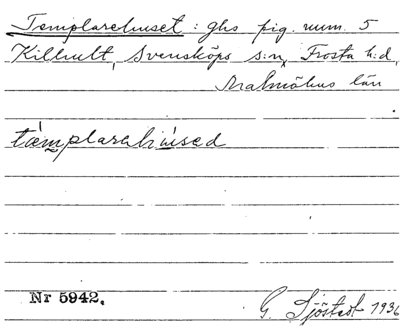 Templarehuset: ghs pig. num. 5
Killhult, Svensköps s:n, Frosta h:d,
Malmöhus län
tämplarehúsed
Nr 5942.
G. Sjöstedt 1936